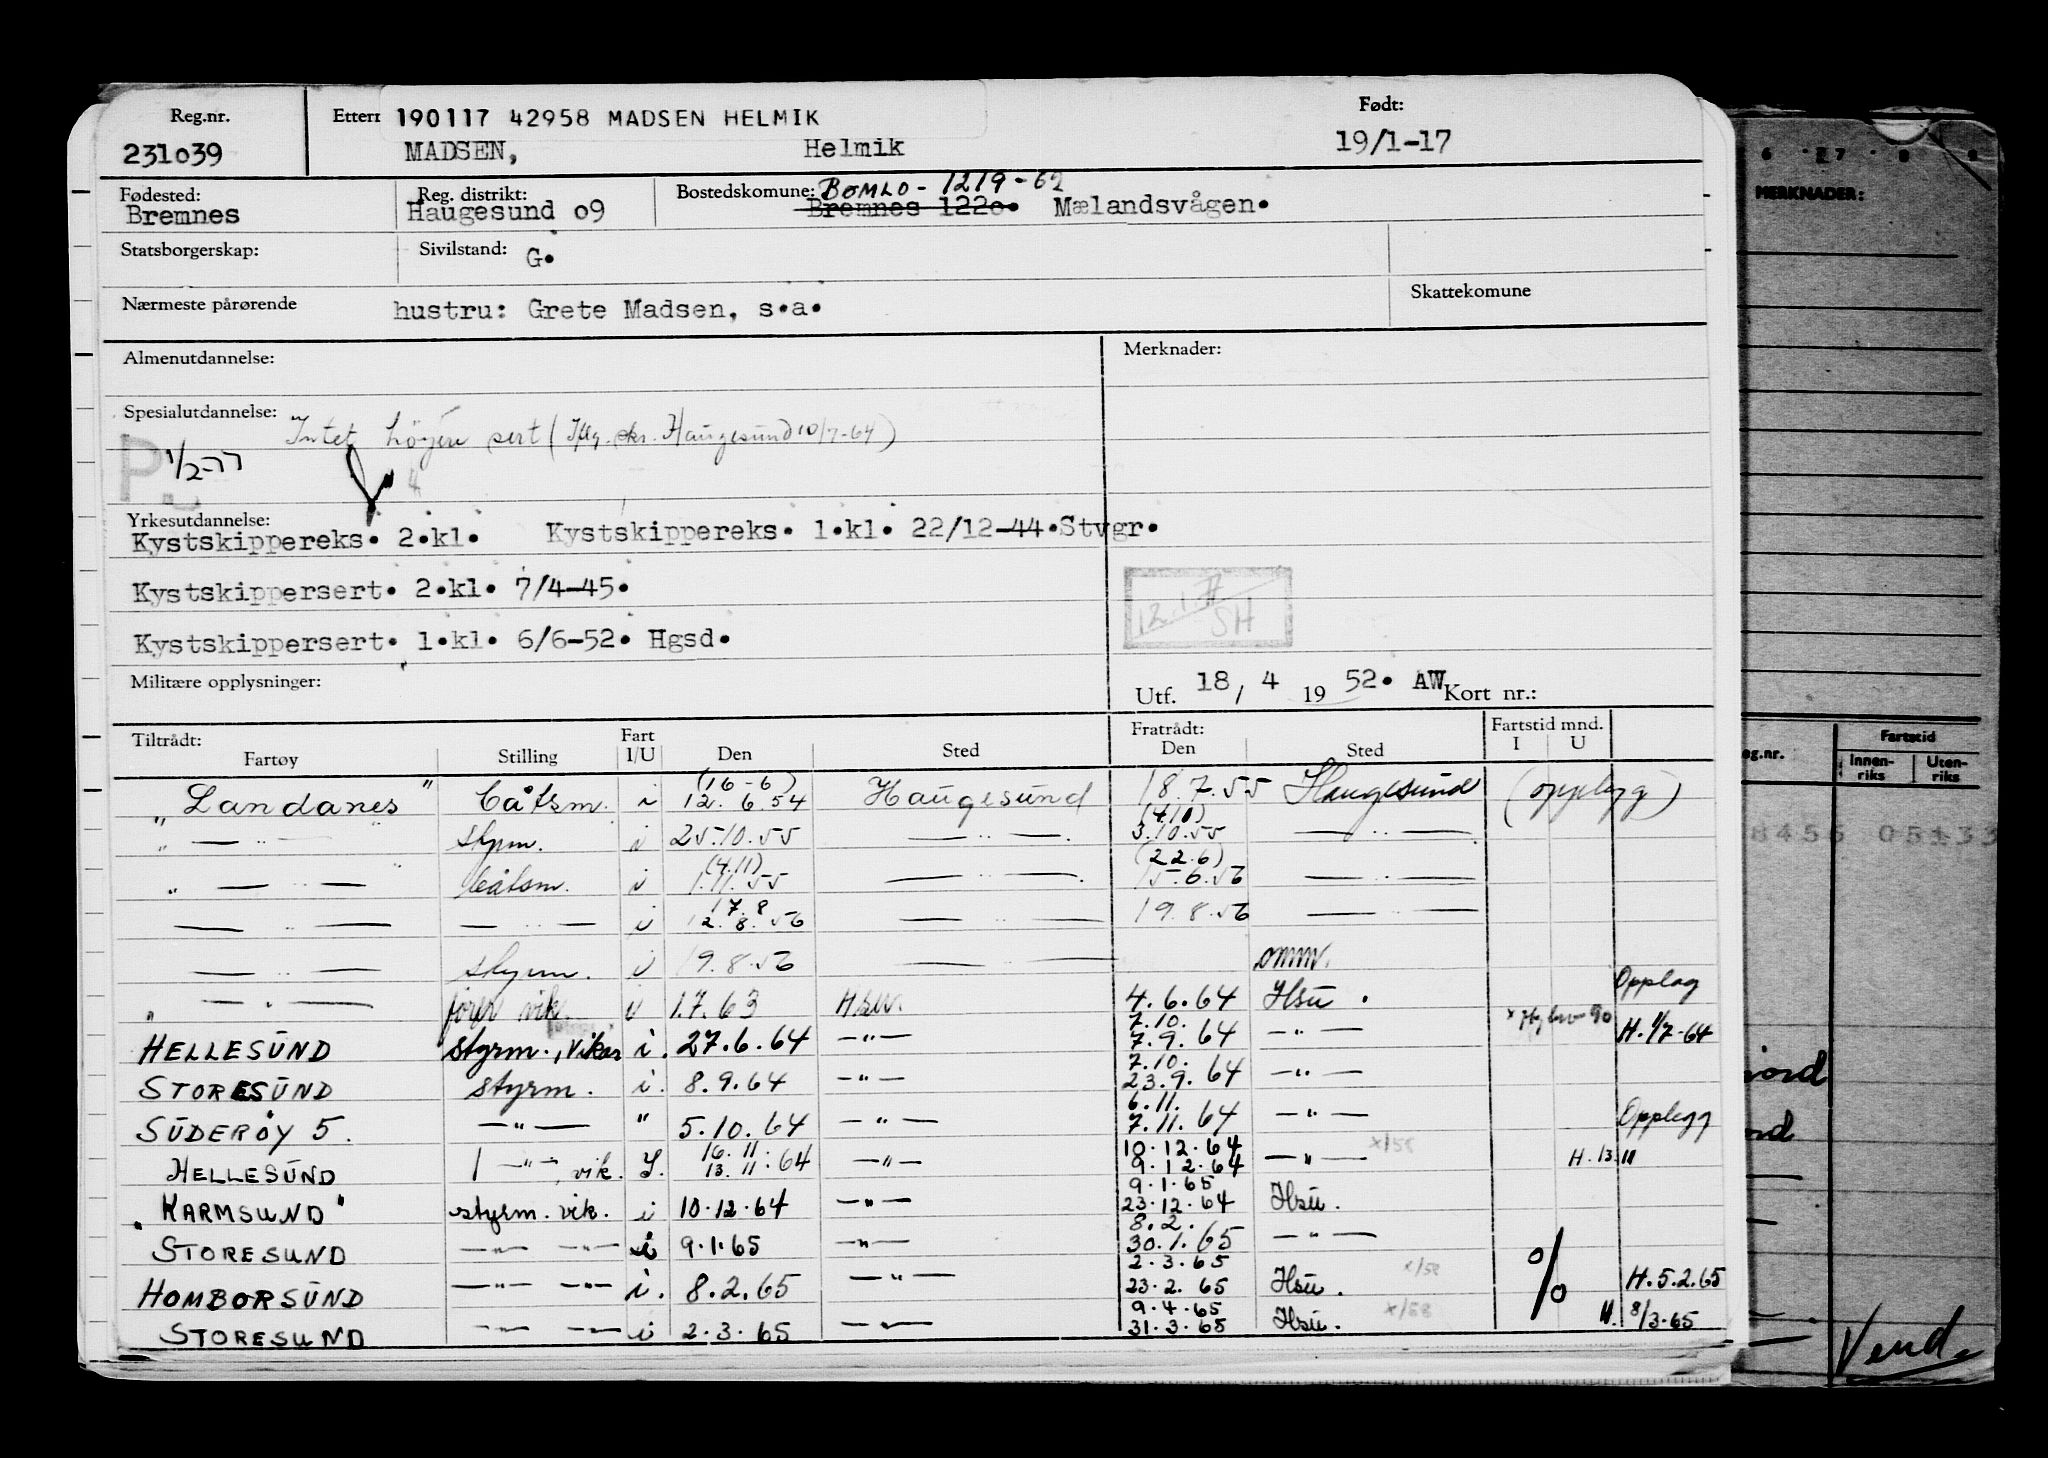 Reg.nr. Ettern 190117 42958 MADSEN HELMIK Født:
231039 MADSEN, Helmik 19/1-17
Fødested: Reg. distrikt: Bostedskomune: BØMLO - 1219-62
Bremnes Haugesund 09 Bremnes 1220. Mælandsvågen.
Statsborgerskap: Sivilstand: G.
Nærmeste pårørende hustru: Grete Madsen, s.a. Skattekomune
Almenutdannelse: Merknader:
Spesialutdannelse: Intet høyere sert (Iflg. skr. Haugesund 10/7-64)
P. 1/2-77
4
Yrkesutdannelse:
Kystskippereks. 2.kl. Kystskippereks. 1.kl. 22/12-44.Stvgr.
Kystskippersert. 2.kl. 7/4-45.
12.1.77 SH
Kystskippersert. 1.kl. 6/6-52. Hgsd.
Militære opplysninger: Utf. 18/4 1952. AW Kort nr.:
Tiltrådt: Fratrådt: Fartstid mnd.
Fartøy Stilling Fart I/U Den Sted Den Sted I U
(16-6)
"Landanes" båtsm. i 12.6.54 Haugesund 18.7.55 Haugesund (opplegg)
(4.10)
" — " — styrm. i 25.10.55 — " — 3.10.55 — " —
(4.11) (22.6)
" — " — båtsm. i 1.11.55 — " — 15.6.56 — " —
17.8
— " — — " — i 12.8.56 — " — 19.8.56 — " —
— " — styrm. i 19.8.56 — " — omm.
" — " — fører vik. i 1.7.63 Hsu. 4.6.64 Hsu. Opplag
7.10.
HELLESUND styrm., vikar i. 27.6.64 — " — 7.9.64 — " — H. 1/7-64
7.10.
STORESUND styrm. i. 8.9.64 — " — 23.9.64 — " —
6.11.
SUDERØY 5. — " — " 5.10.64 — " — 7.11.64 — " — Opplegg
16.11 10.12.64 x/58
HELLESUND — " —, vik. I. 13.11.64 — " — 9.12.64 — " — H. 13.11
9.1.65
"KARMSUND" styrm. vik. i 10.12.64 — " — 23.12.64 Hsu.
8.2.
STORESUND — " — — " — i 9.1.65 — " — 30.1.65 — " —
2.3.65 x/58
HOMBORSUND — " — — " — i. 8.2.65 — " — 23.2.65 Hsu. % H. 5.2.65
9.4.65 x/58
STORESUND — " — — " — i 2.3.65 — " — 31.3.65 Hsu. H. 8/3-65
6 7 8 9
MERKNADER:
eg.nr. Fartstid
Innenriks Utenriks
8456 05133
Vend.